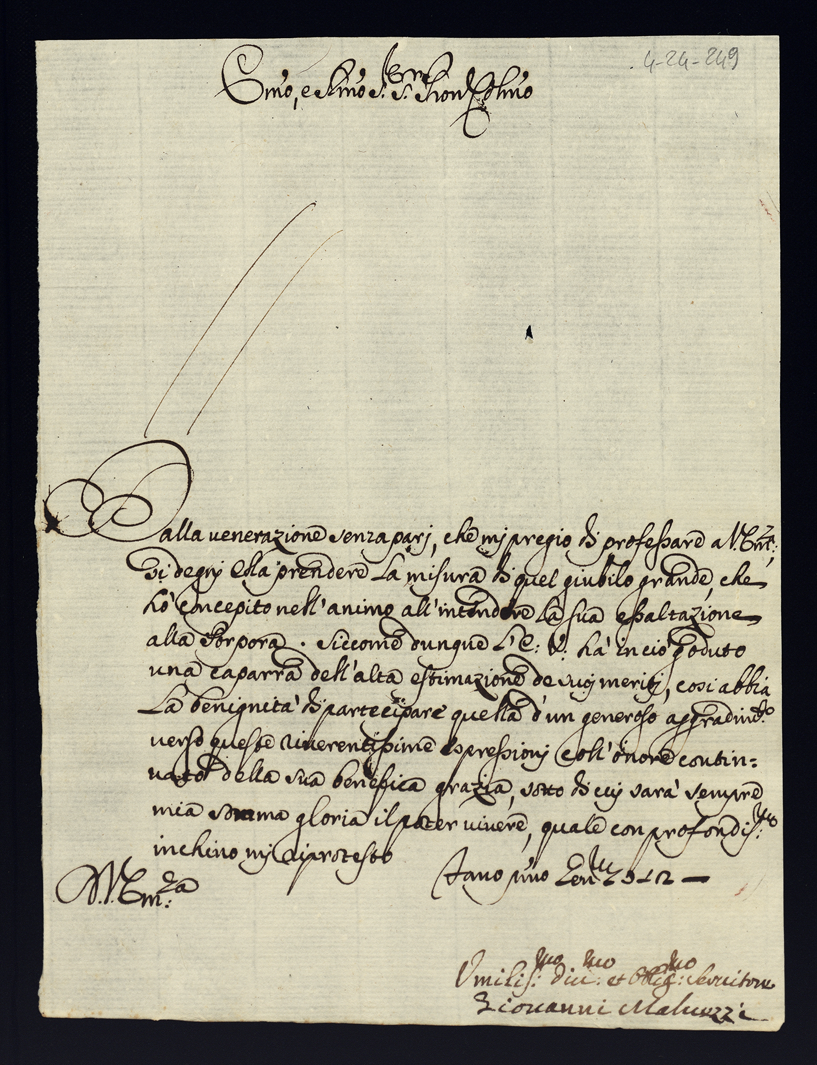 4-24-249
Emo, e Rmo Sr. Sr. Pron Colmo
Dalla venerazione senza parj, che mj pregio di professare a V. Emza:
si degnj Ella prendere la misura di quel giubilo grande, che
hò concepito nell'animo all'intendere la sua essaltazione
alla Porpora. Siccome dunque L'E: V: hà in ciò goduto
una caparra dell'alta estimazione de suoj meritj, così abbia
La benignità di partecipare quella d'un generoso aggradimto
verso queste riverentissime espressionj coll'onore contin=
uato della sua benefica grazia, sotto di cuj sarà sempre
mia somma gloria il poter vivere, quale con profondiss:mo
inchino mj riprotesto
D. V. Em:za
Fano pmo
Umiliss:mo Div:mo et Obblig:mo Servitore
Giovanni